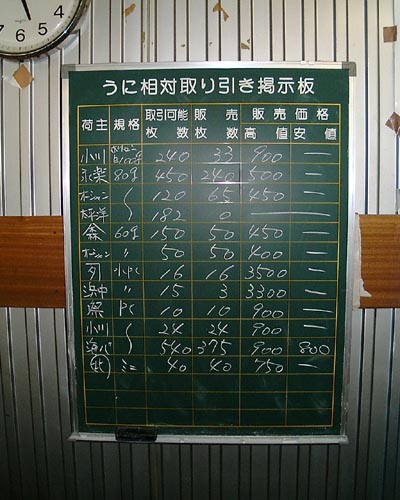 4
5
6
7
うに相対取り引き掲示板
荷主 規格 取引可能枚数 販売枚数 販売価格 高値 安値
小川 240 33 900 —
永楽 80g 450 240 500 —
120 65 450 —
182 0 —
60g 150 50 450 —
〃 50 50 400 —
小pc 16 16 3500 —
浜中 〃 15 3 3300 —
pc 10 10 900 —
小川 24 24 900 —
540 375 900 800
ミニ 40 40 750 —